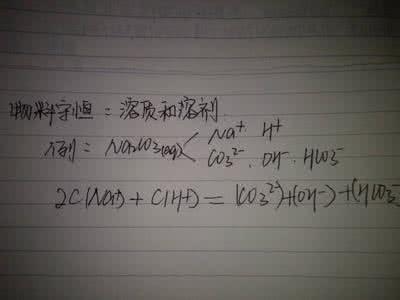 物料守恒：溶质和溶剂.
例：Na2CO3(aq) < Na+ H+
CO3²⁻ . OH⁻ . HCO3⁻
2C(Na+) + C(H+) = (CO3²⁻)+(OH⁻)+(HCO3⁻